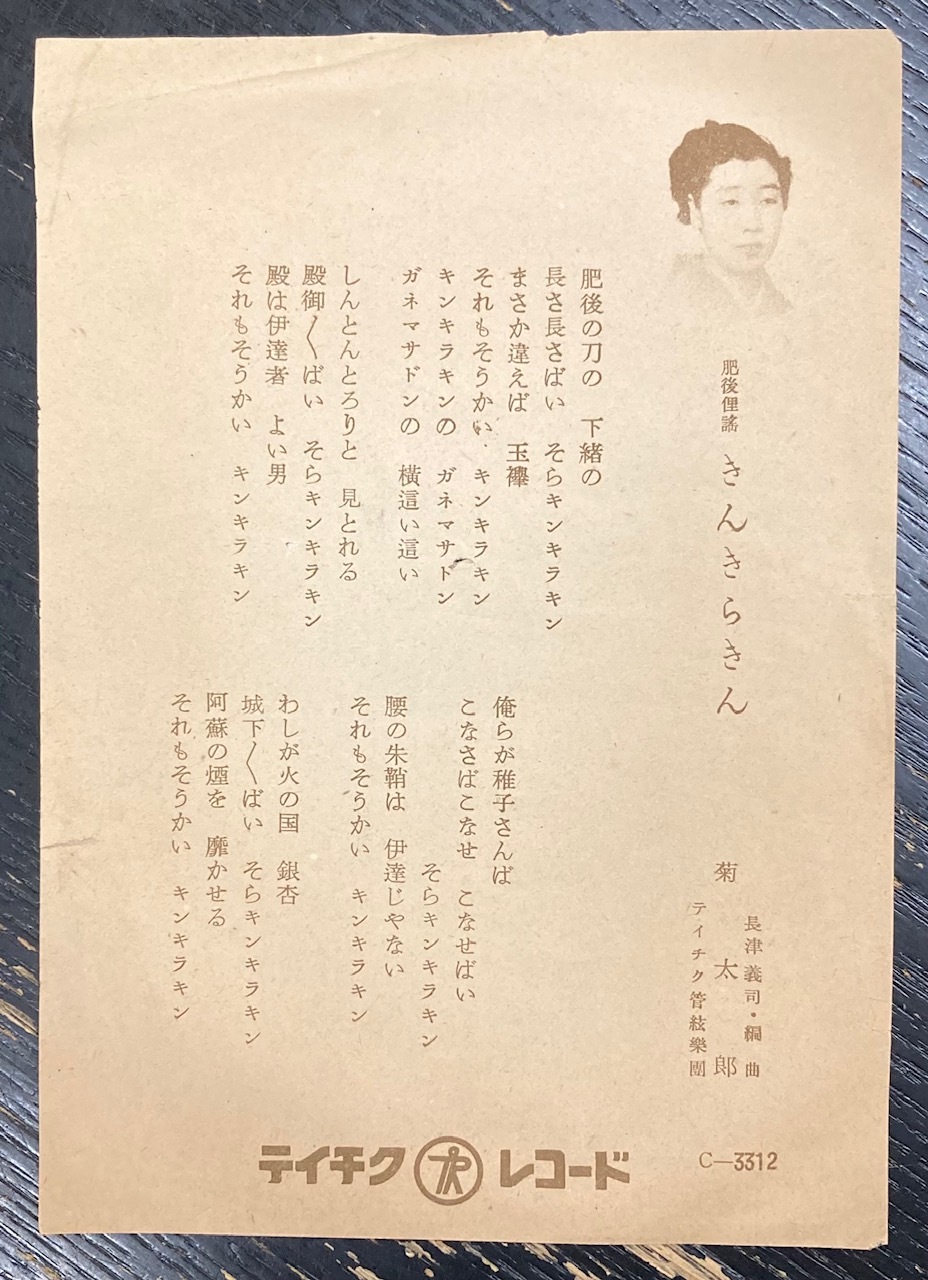 肥後俚謠 きんきらきん
長津義司・編曲
菊太郎
テイチク管絃樂團
肥後の刀の 下緒の
長さ長さばい そらキンキラキン
まさか違えば 玉襷
それもそうかい キンキラキン
キンキラキンの ガネマサトン
ガネマサドンの 橫這い這い
しんとんとろりと 見とれる
殿御〱ばい そらキンキラキン
殿は伊達者 よい男
それもそうかい キンキラキン
俺らが稚子さんば
こなさばこなせ こなせばい
そらキンキラキン
腰の朱鞘は 伊達じゃない
それもそうかい キンキラキン
わしが火の国 銀杏
城下〱ばい そらキンキラキン
阿蘇の煙を 靡かせる
それもそうかい キンキラキン
テイチク レコード
C—3312